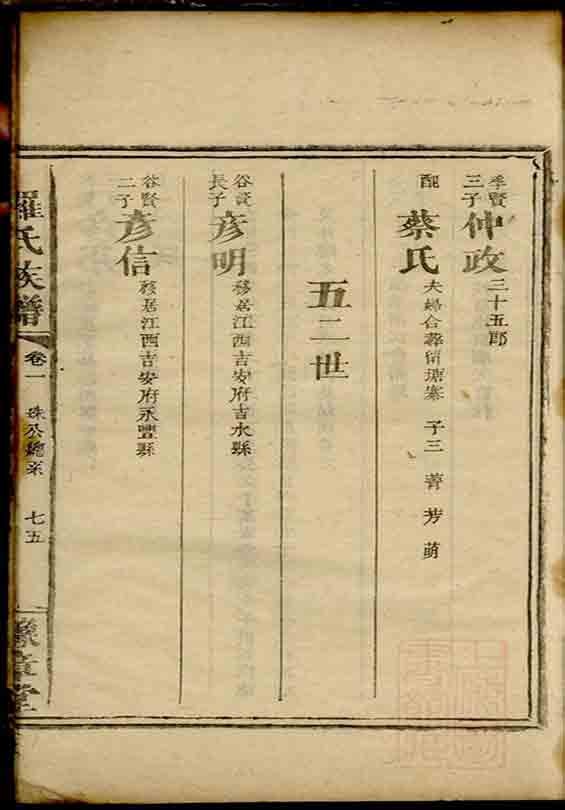 季賢三子 仲政 三十五郎
配 蔡氏 夫婦合葬留源寨 子三 菁 芳 萌
五二世
谷賢長子 彦明 移居江西吉安府吉水縣
谷賢二子 彦信 移居江西吉安府永豐縣
羅氏族譜 卷一 珠公總系 七五 豫章堂